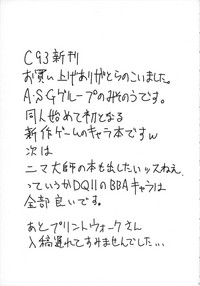 C93新刊
お買い上げありがとうございました。
A・S・Gグループのみぞうです。
同人始めて初となる
新作ゲームのキャラ本ですw
次は
ニマ大師の本も出したいッスねえ、
っていうかDQⅡのBBAキャラは
全部良いです。
あとプリントウォークさん
入稿遅れてすみませんでした…